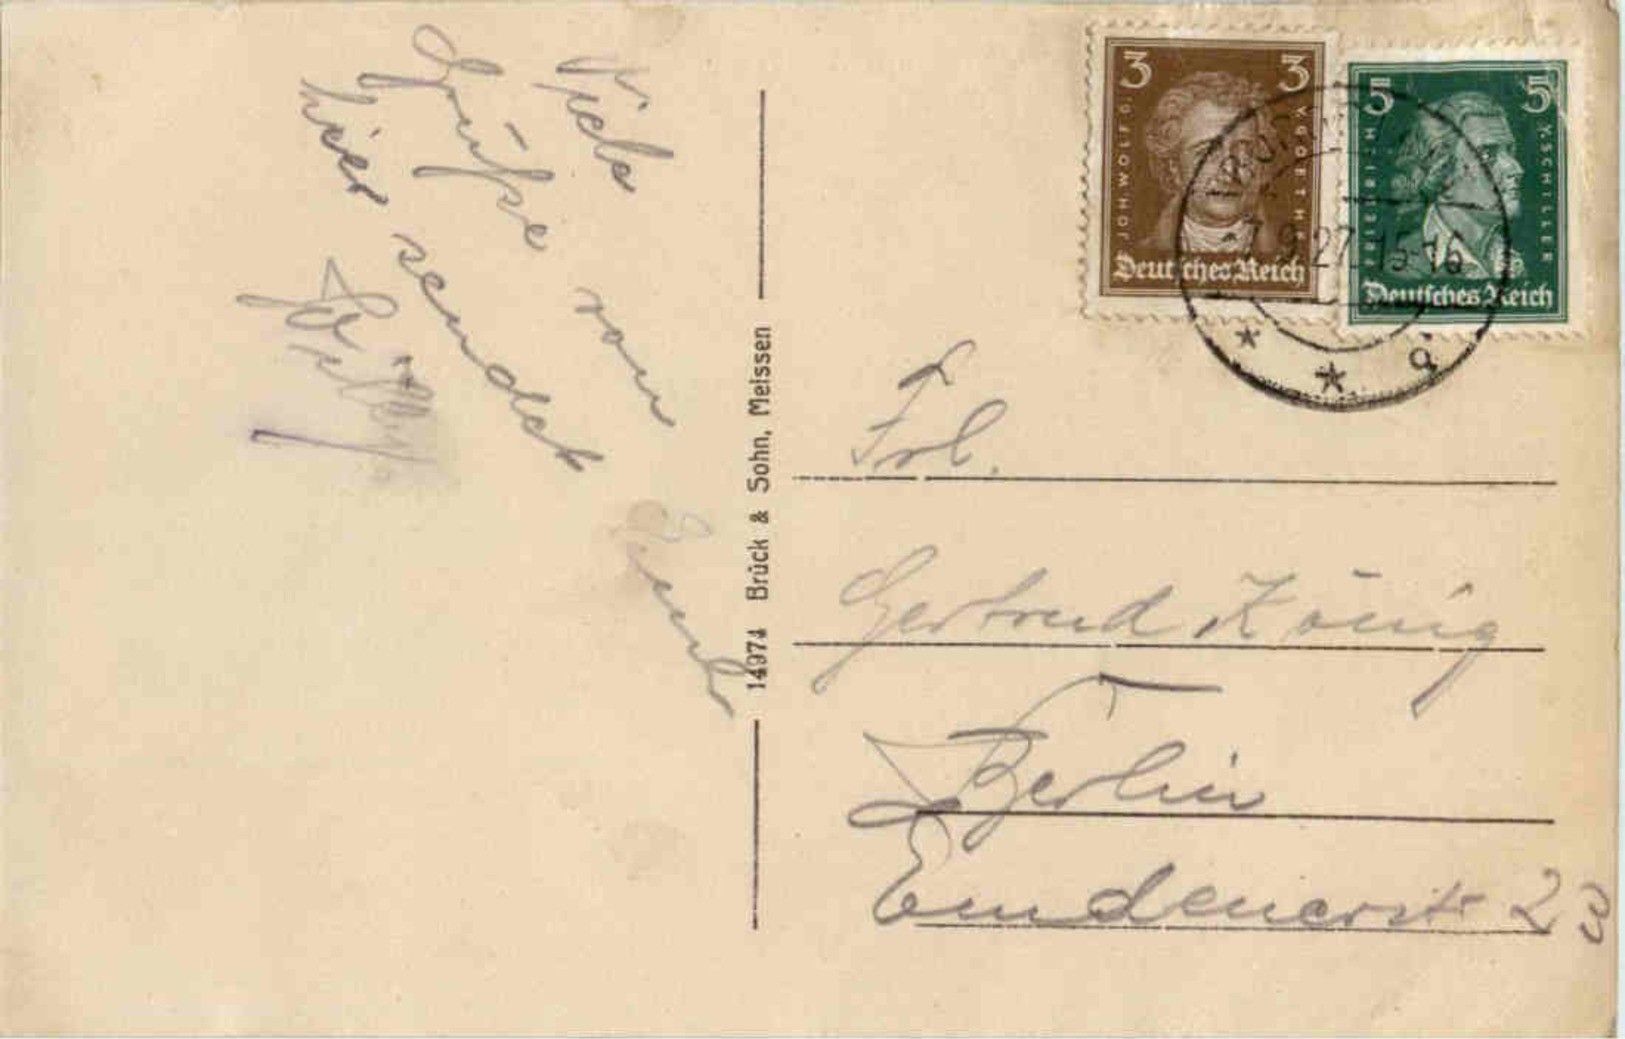 Viele
Grüße von
hier sendet Euch
Willy
14974 Brück & Sohn, Meissen
3 3
JOH. WOLFG. V. GOETHE
Deutsches Reich
5 5
FRIEDRICH V. SCHILLER
Deutsches Reich
7.9.27. 15-16
* * a
Frl.
Gertrud König
Berlin
Emdenerstr 23